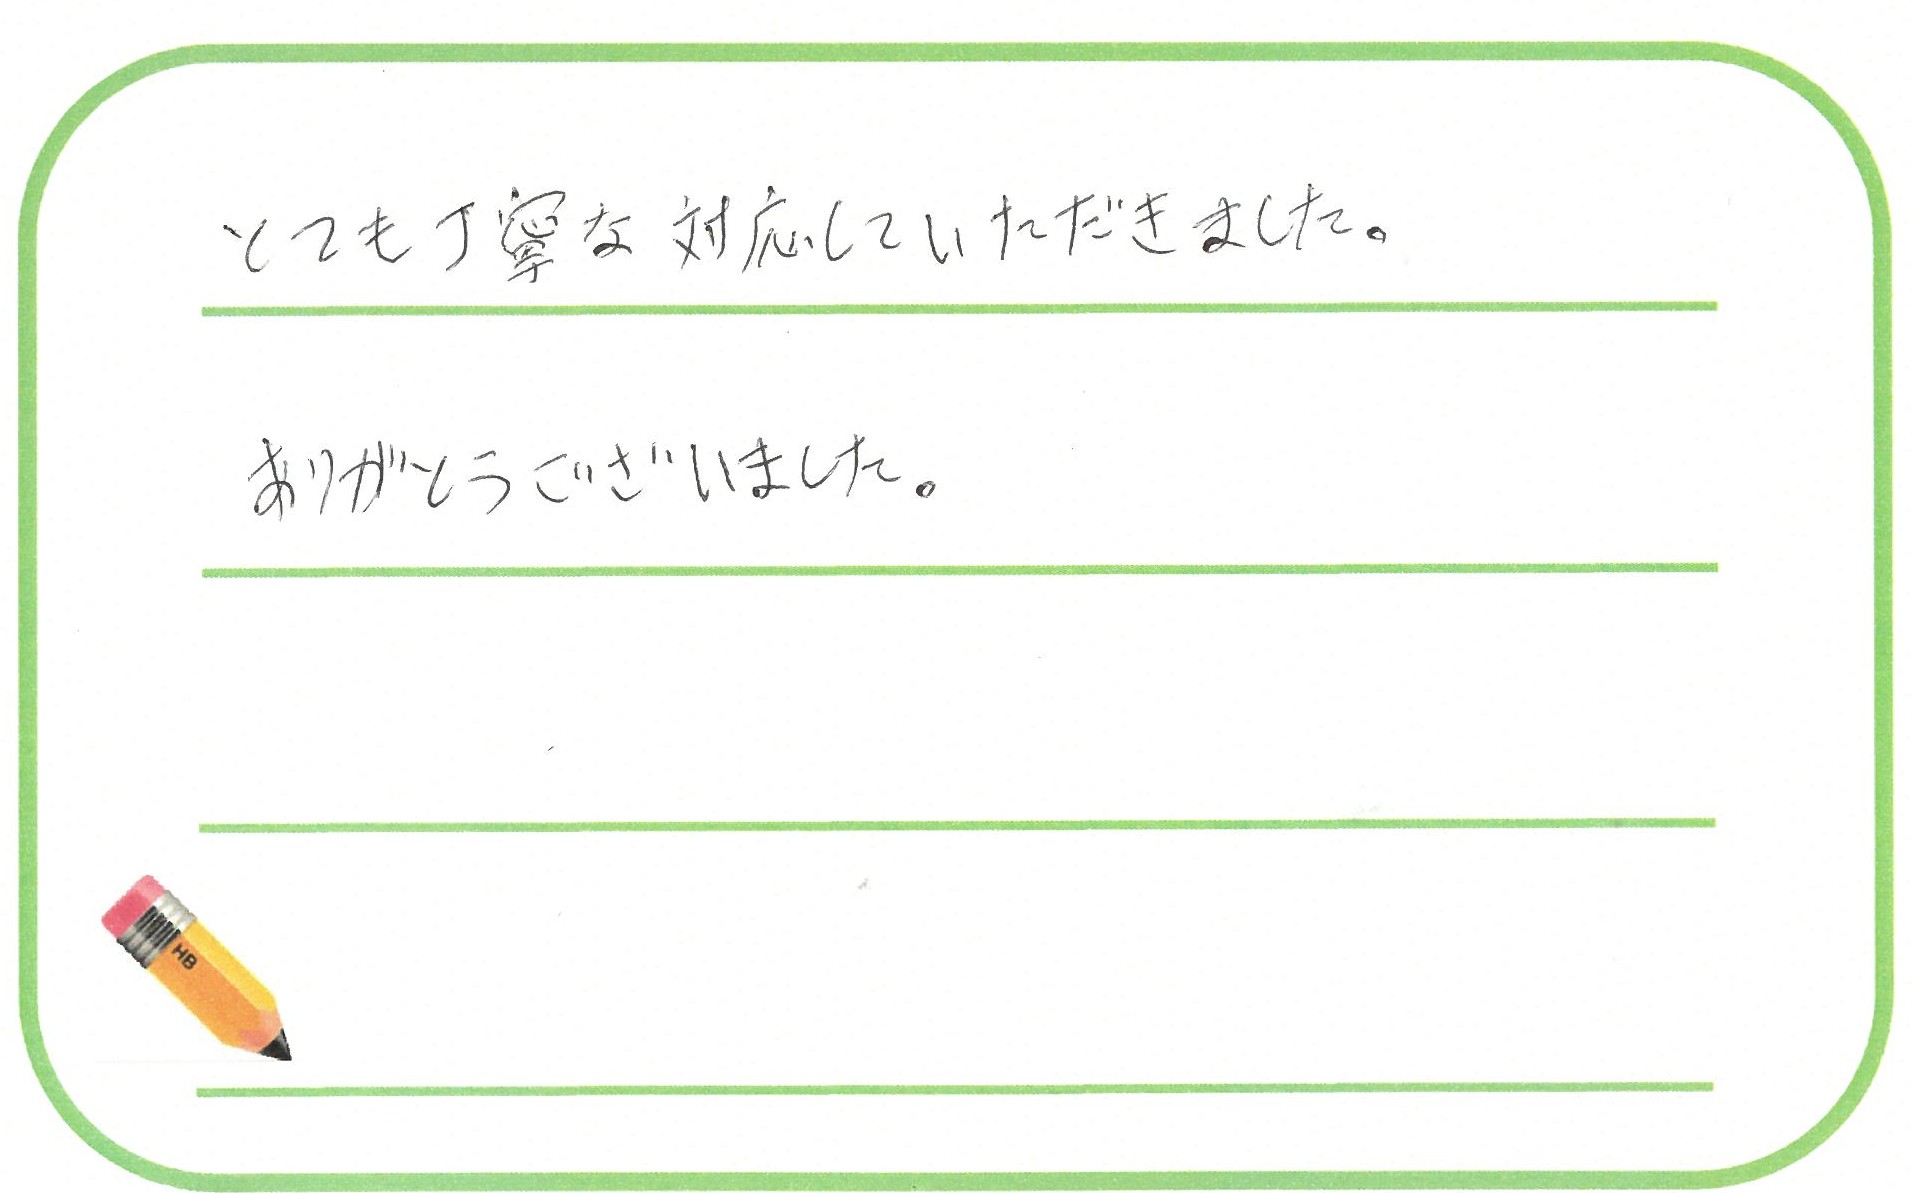 とても丁寧な対応していただきました。
ありがとうございました。
HB